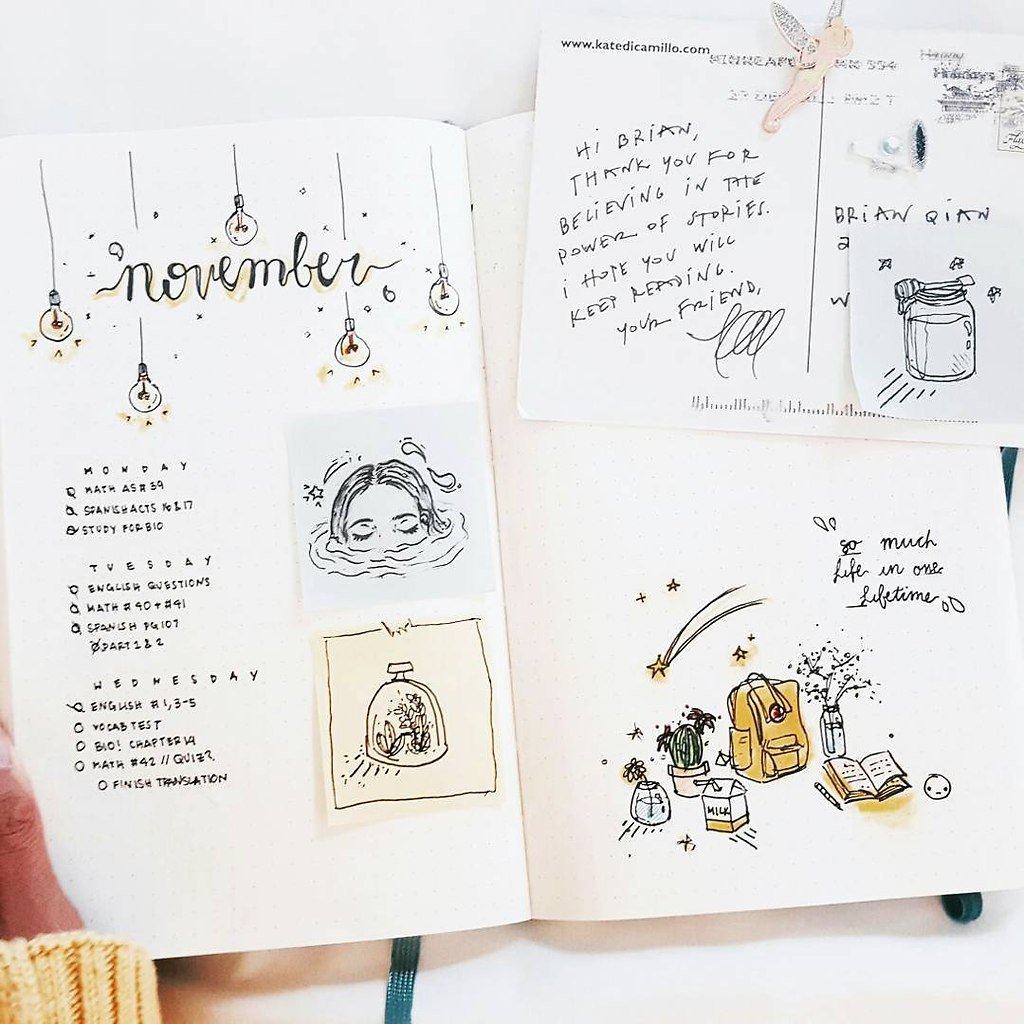 november
MONDAY
MATH AS#39
SPANISH ACTS 16 & 17
STUDY FOR BIO
TUESDAY
ENGLISH QUESTIONS
MATH #40 + #41
SPANISH PG 107
PART 1 & 2
WEDNESDAY
ENGLISH #1, 3-5
VOCAB TEST
BIO! CHAPTER 14
MATH #42 // QUIZ?
FINISH TRANSLATION
www.katedicamillo.com
HI BRIAN,
THANK YOU FOR
BELIEVING IN THE
POWER OF STORIES.
I HOPE YOU WILL
KEEP READING.
YOUR FRIEND,
BRIAN QIAN
2
W
so much
life in one
lifetime
MILK